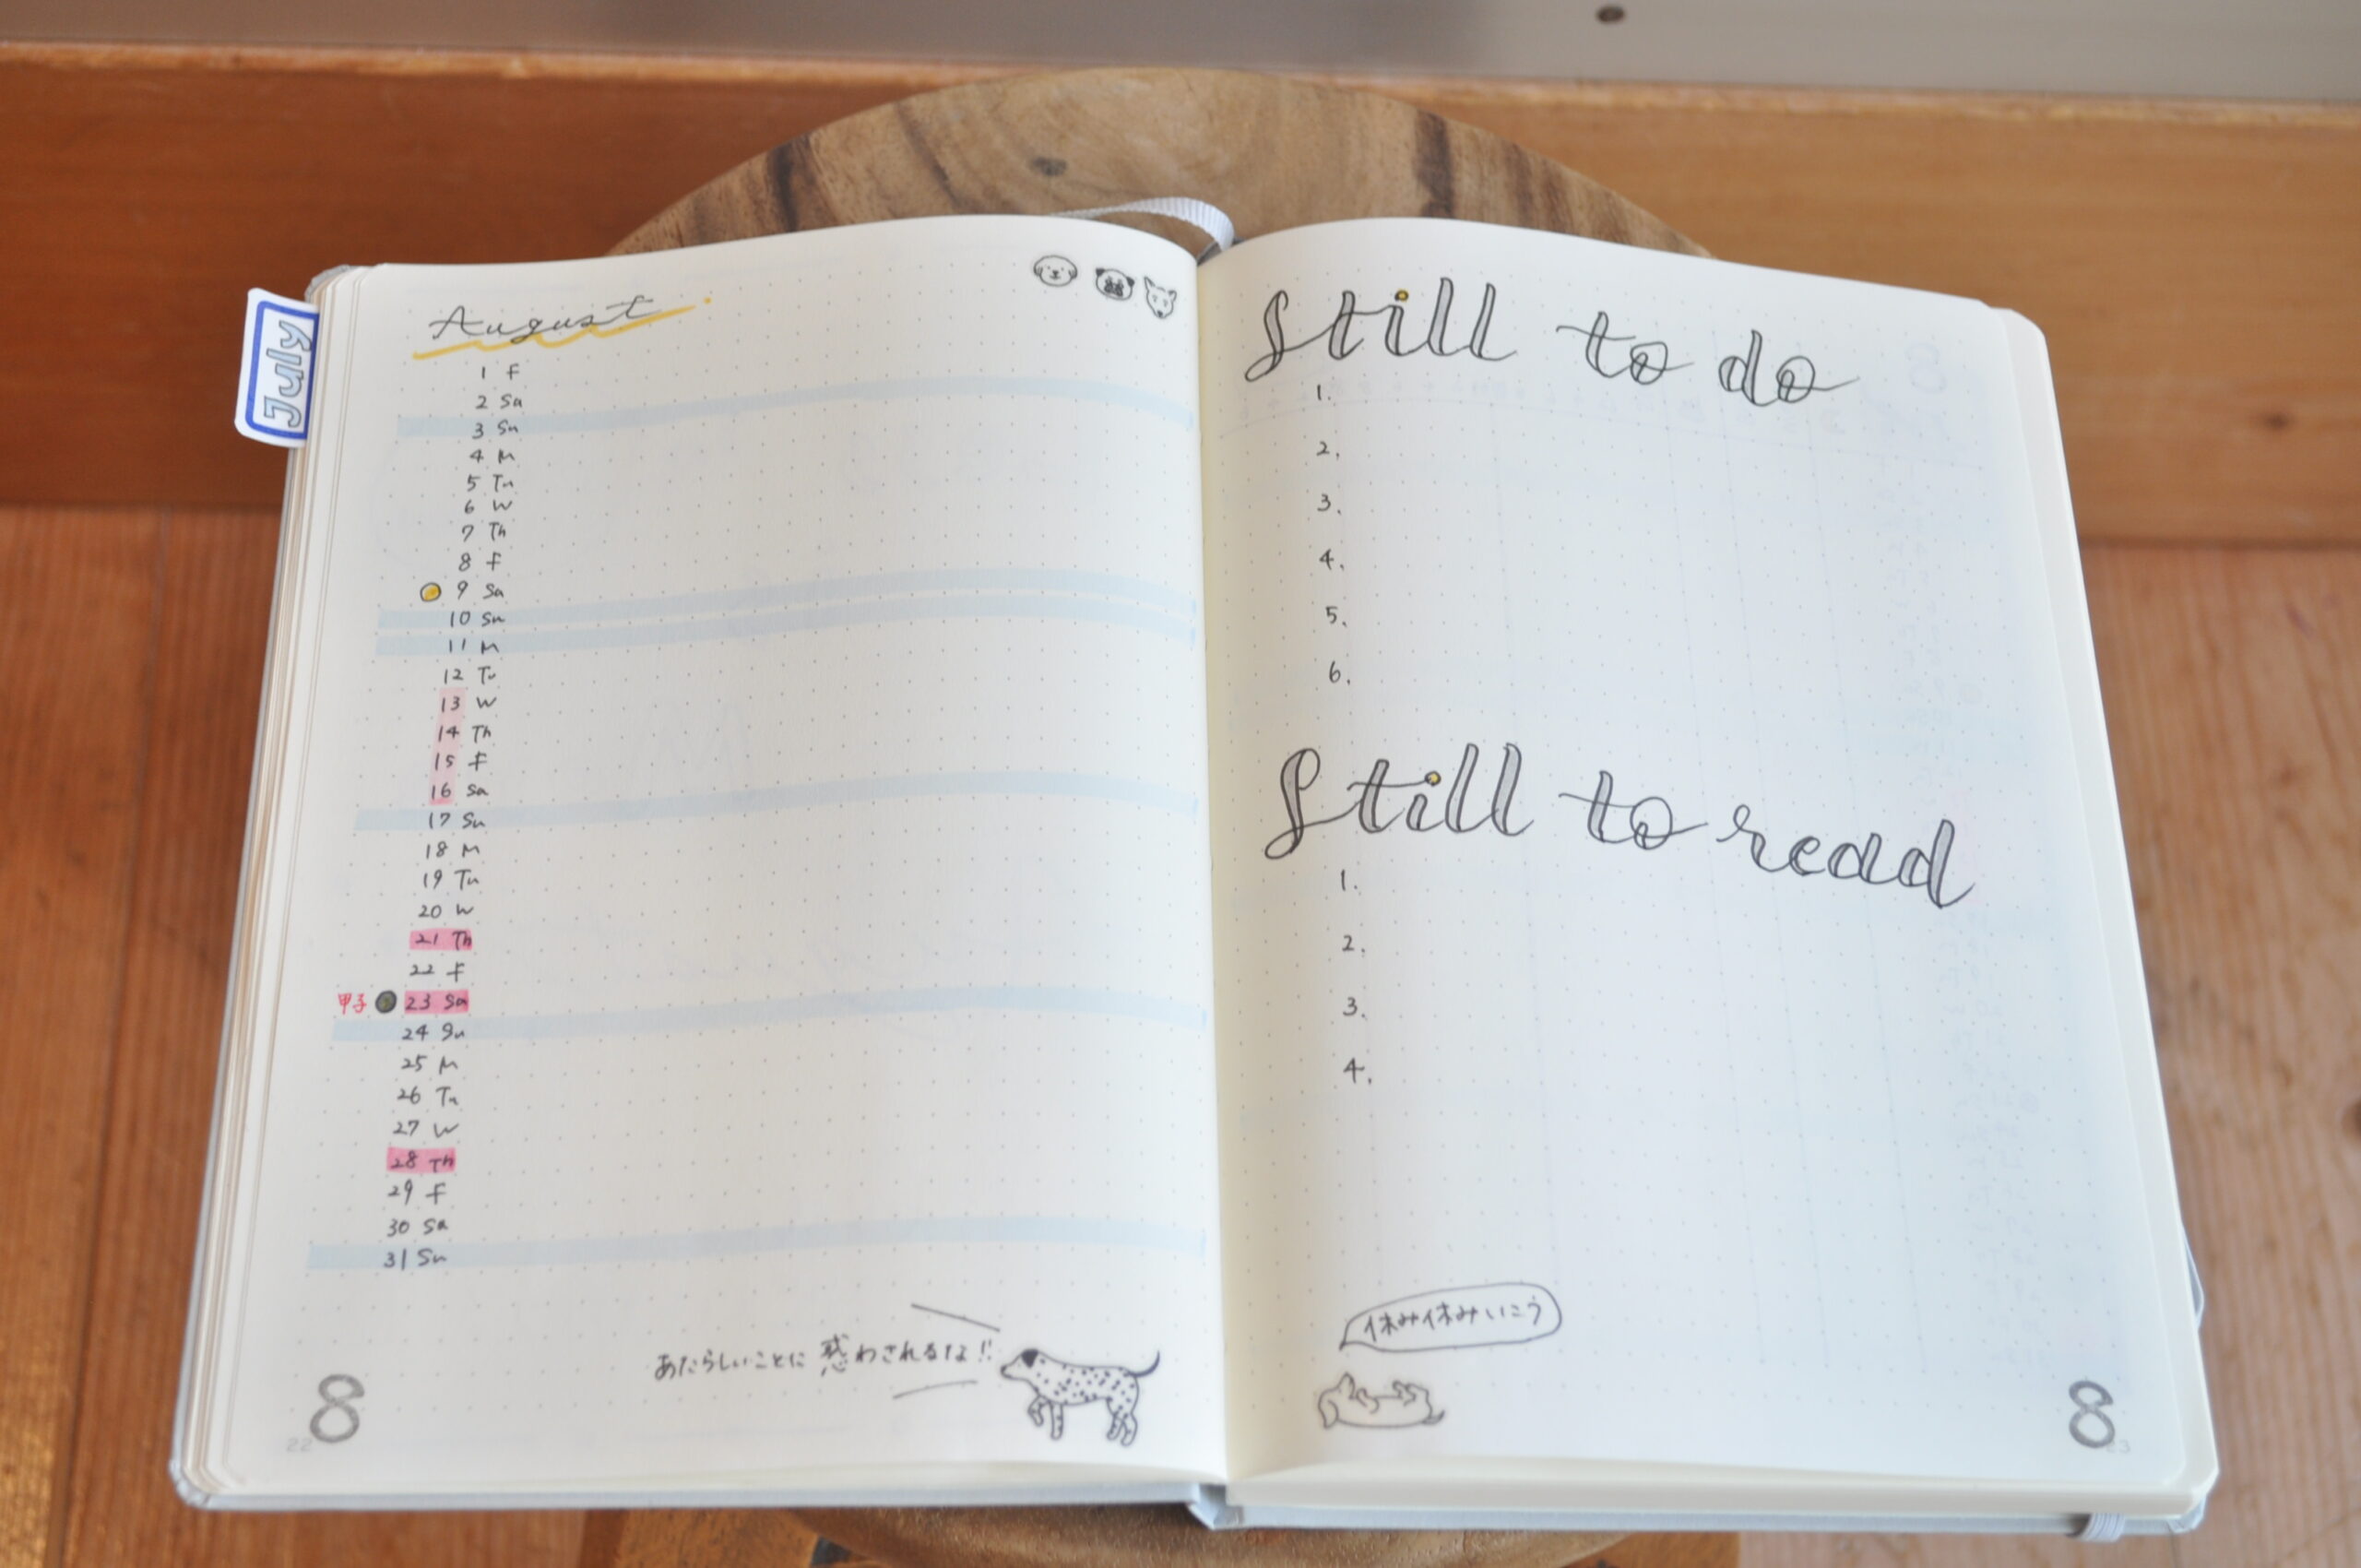 July
August
1 F
2 Sa
3 Su
4 M
5 Tu
6 W
7 Th
8 F
9 Sa
10 Su
11 M
12 Tu
13 W
14 Th
15 F
16 Sa
17 Su
18 M
19 Tu
20 W
21 Th
22 F
甲子 23 Sa
24 Su
25 M
26 Tu
27 W
28 Th
29 F
30 Sa
31 Su
あたらしいことに惑わされるな!!
8
22
Still to do
1.
2.
3.
4.
5.
6.
Still to read
1.
2.
3.
4.
休み休みいこう
8
23